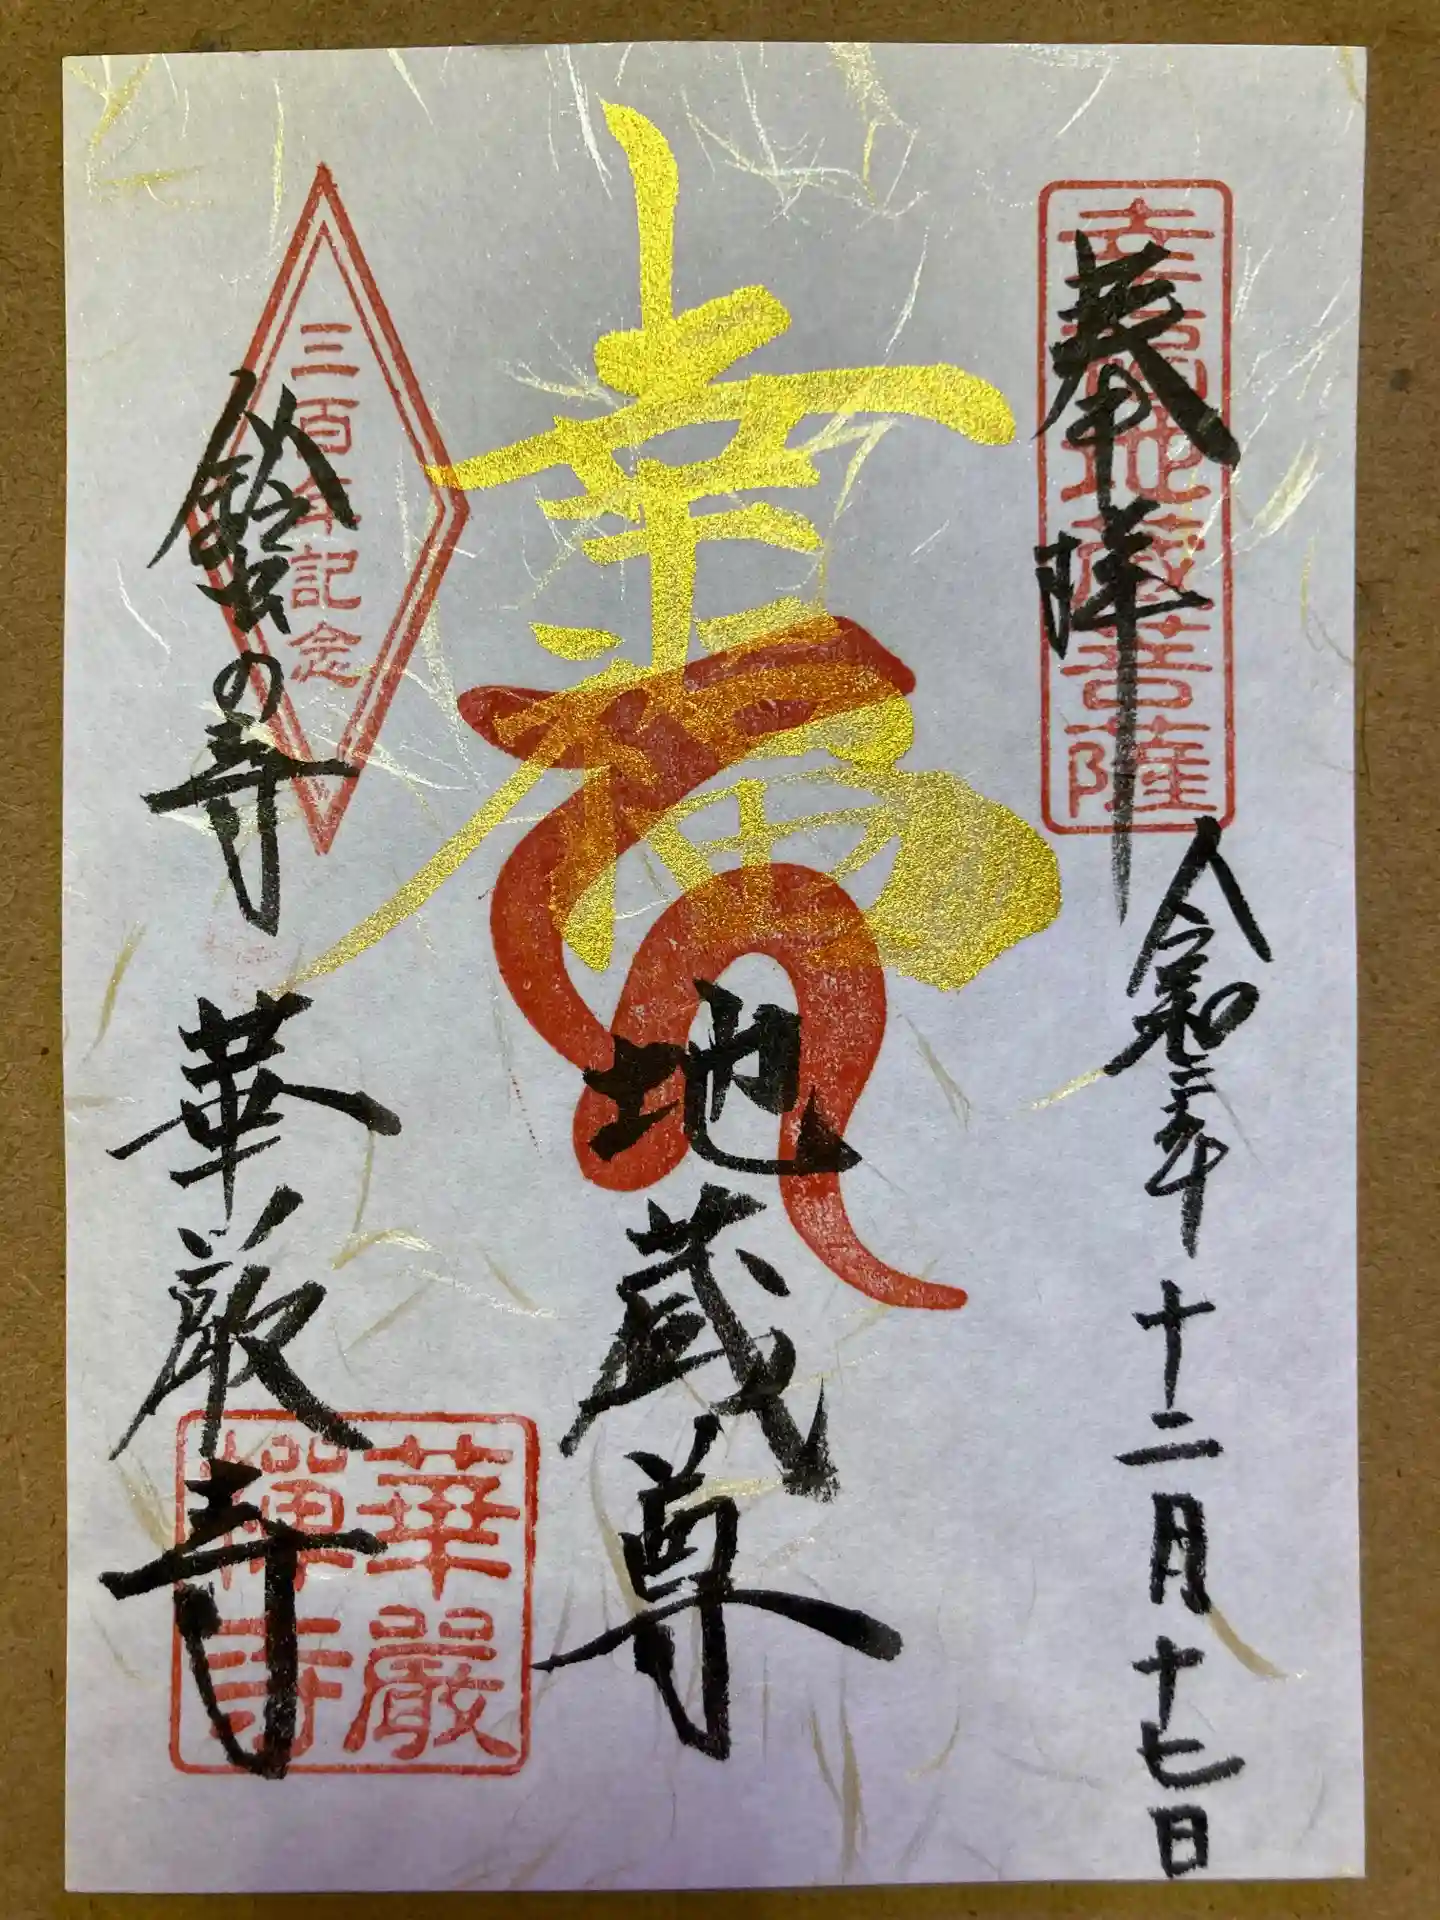 奉拝
幸福地蔵菩薩
令和 年 十二月 十七日
幸福
地蔵尊
三百年記念
鈴虫の寺 華厳寺
華嚴
禪寺